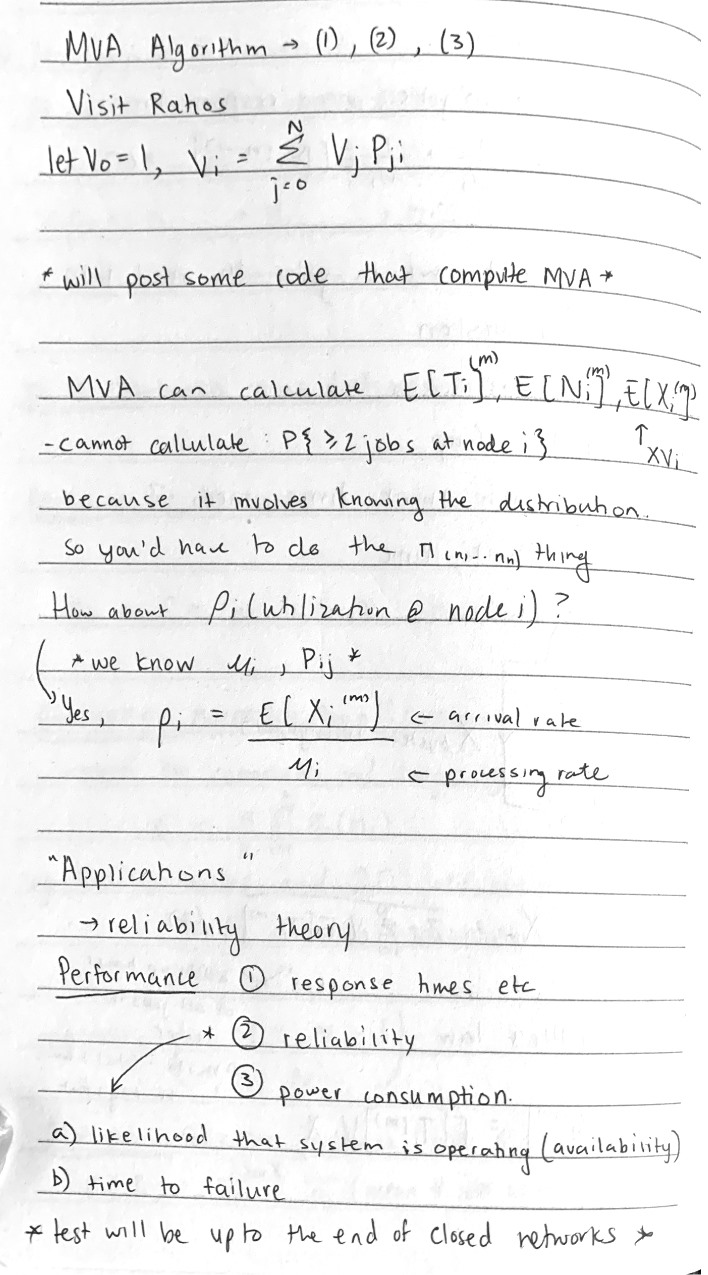 MVA Algorithm → (1), (2), (3)
Visit Ratios
let V₀ = 1, Vᵢ = Σ_{j=0}^{N} Vⱼ Pⱼᵢ
* will post some code that compute MVA *
MVA can calculate E[Tᵢ]⁽ᵐ⁾, E[Nᵢ⁽ᵐ⁾], E[Xᵢ⁽ᵐ⁾]
- cannot calculate : P{ ≥ 2 jobs at node i } ↑ XVᵢ
because it involves knowing the distribution.
so you'd have to do the π(n₁...nₙ) thing
How about ρᵢ (utilization @ node i) ?
* we know μᵢ, Pᵢⱼ *
Yes, ρᵢ = E[Xᵢ⁽ᵐ⁾) ← arrival rate
μᵢ ← processing rate
"Applications"
→ reliability theory
Performance ① response times etc
* ② reliability
③ power consumption.
a) likelihood that system is operating (availability)
b) time to failure
* test will be up to the end of closed networks *